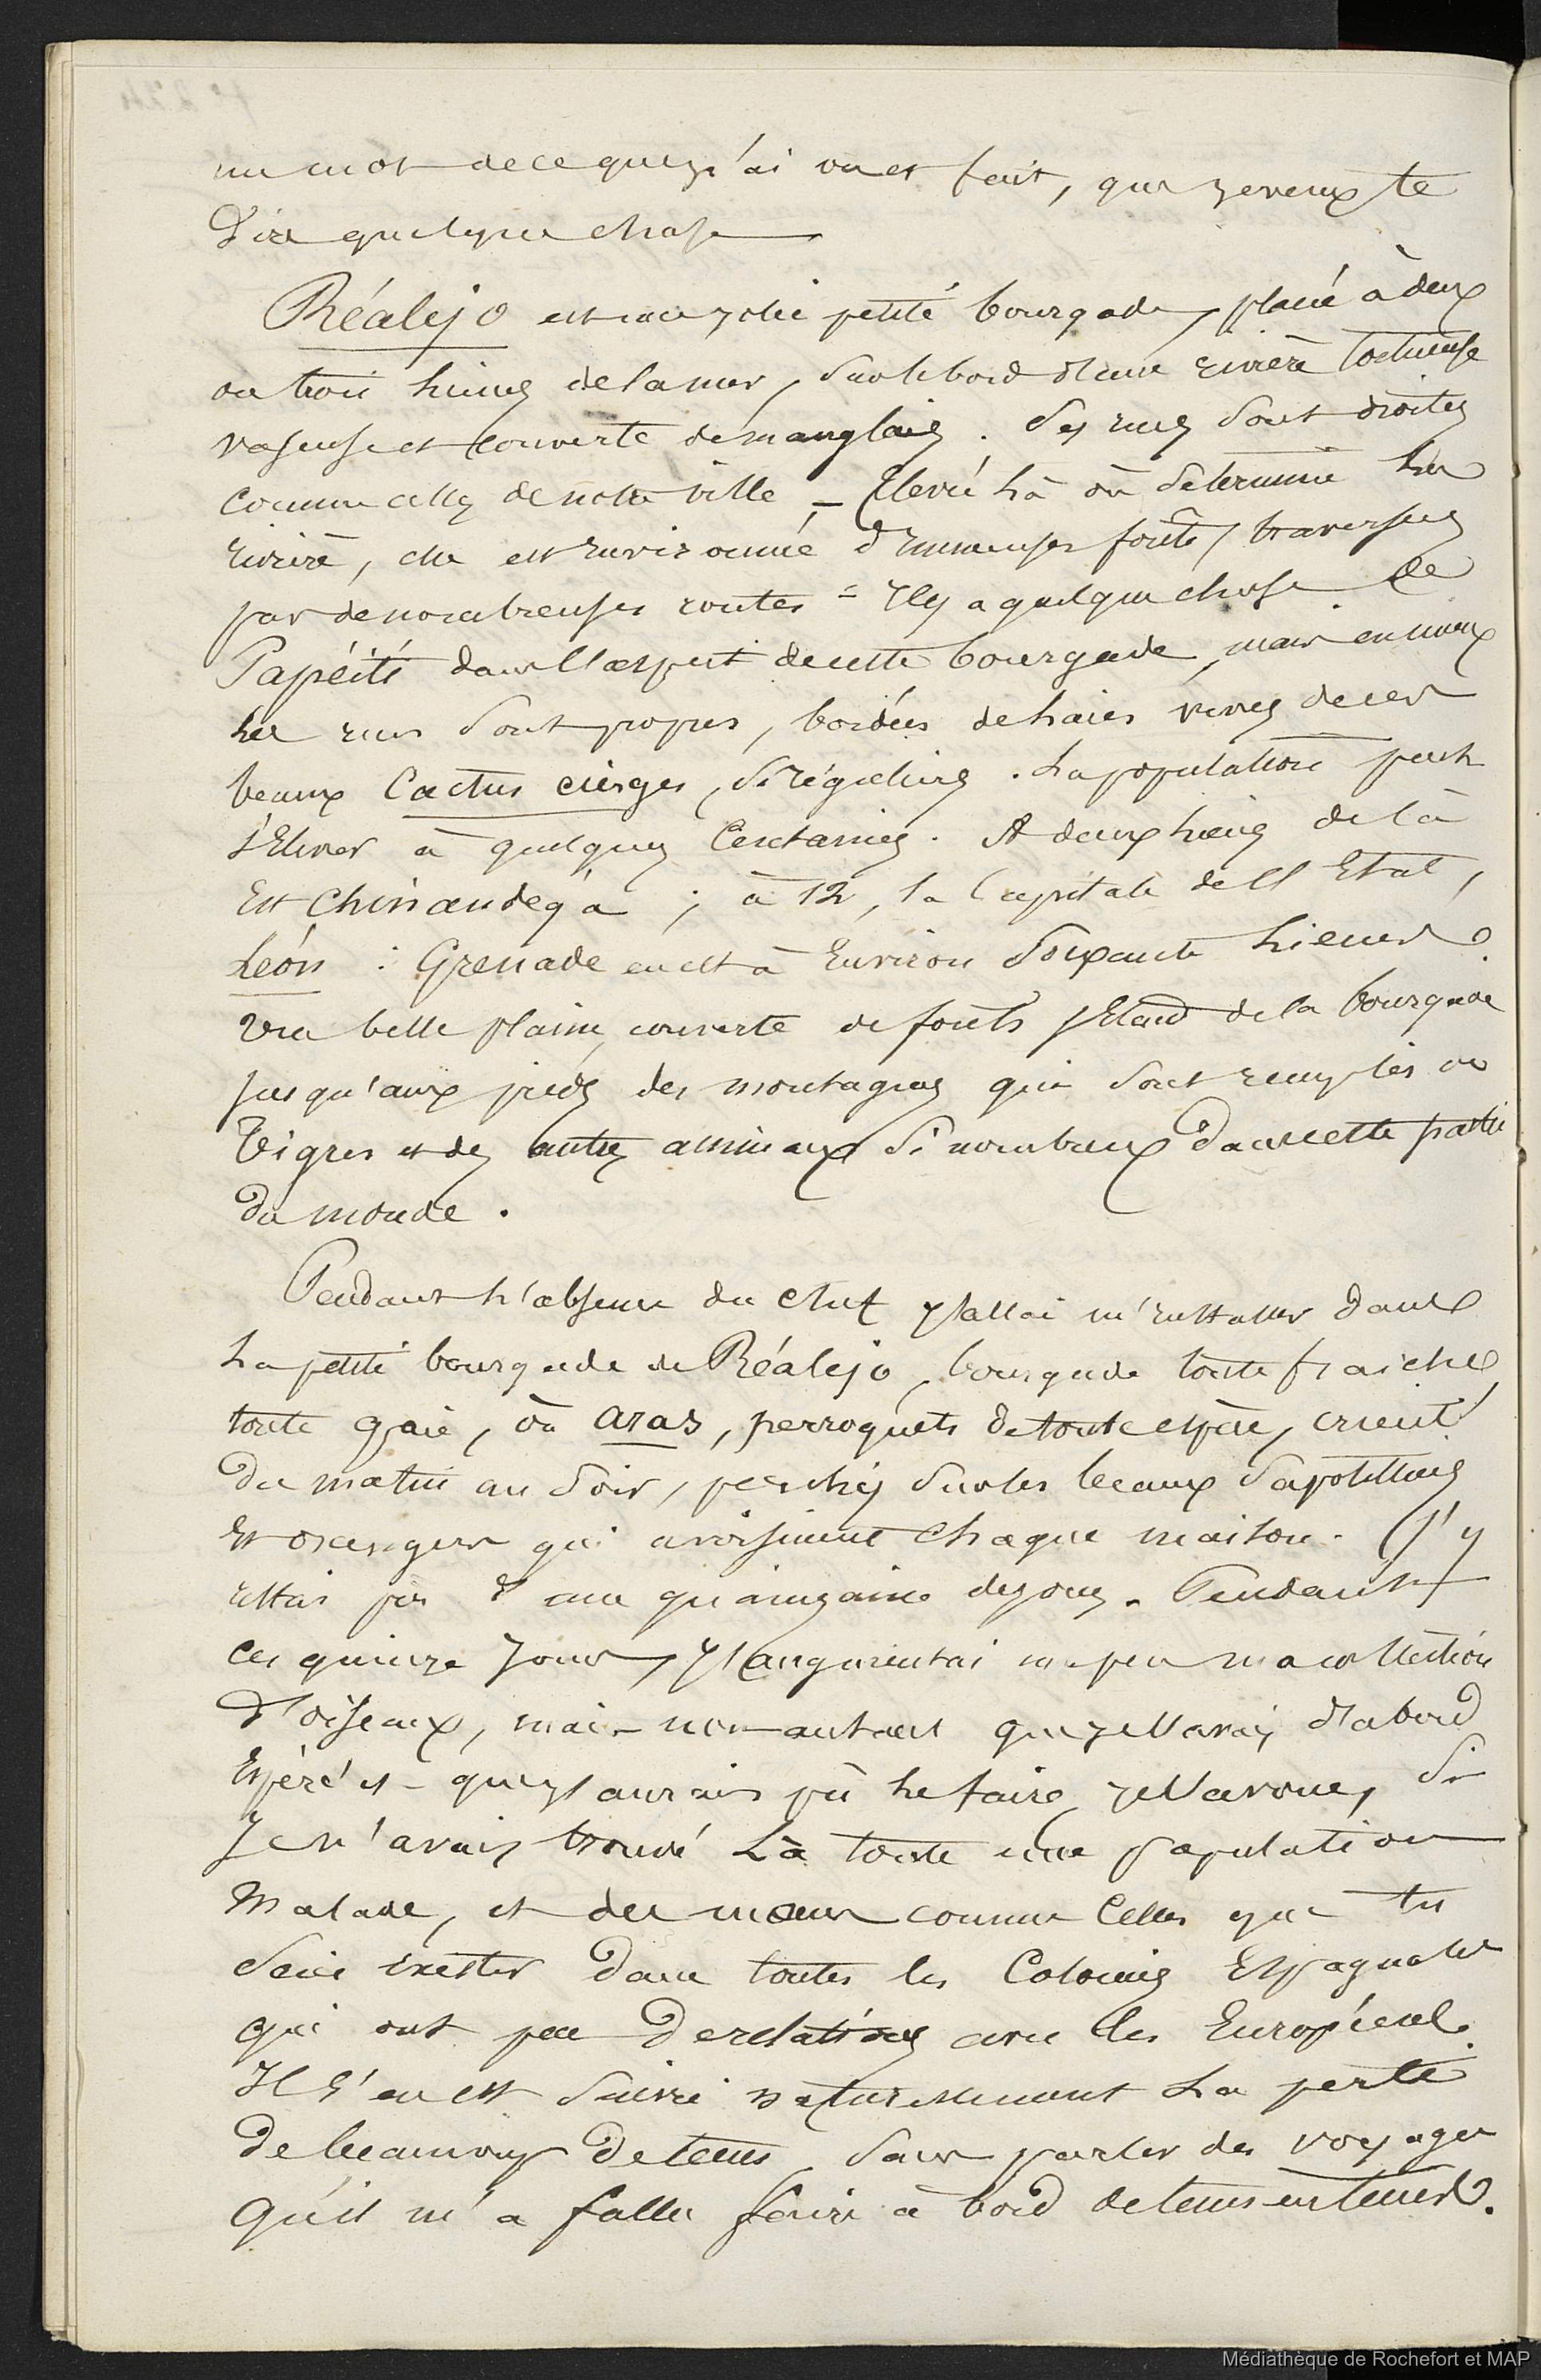 un mot de ce que j'ai vu et fait, que je veux te
dire quelque chose
Réalejo est une jolie petite bourgade, placée à deux
ou trois lieues de la mer, sur le bord d'une rivière tortueuse
vaseuse et couverte de mangliers. Ses rues sont droites
comme celles de notre ville _ Elevée là où se termine la
rivière, elle est environnée d'immenses forêts, traversées
par de nombreuses routes = Il y a quelque chose de
Papéïté dans l'aspect de cette bourgade, mais en mieux
les rues sont propres, bordées de haies vives de ces
beaux Cactus cierges, si réguliers. La population peut
s'élever à quelques Centaines. A deux lieues de là
Est Chinandéga ; à 12, la Capitale de l'Etat,
Léon : Grenade en est à Environ Soixante lieues.
Une belle plaine, couverte de forêts s'étend de la bourgade
Jusqu'aux pieds des montagnes qui sont remplies de
Tigres et des autres animaux si nombreux dans cette partie
du monde.
Pendant l'absence du chef j'allai m'installer dans
La petite bourgade de Réalejo, bourgade toute fraîche
toute gaie, où aras, perroquets de toute espèce, crient
du matin au soir, perchés sur les beaux Sapotilliers
Et orangers qui avoisinent chaque maison. J'y
restai près d'une quinzaine de jours. Pendant
ces quinze Jours, j'augmentai un peu ma collection
d'oiseaux, mais non autant que je l'avais d'abord
Espéré et que j'aurais pû le faire, je l'avoue, si
Je n'avais trouvé là toute une population
Malade, et des mœurs comme Celles que tu
sais exister dans toutes les Colonies Espagnoles
qui ont peu de relations avec les Européens.
Il s'en est suivi naturellement La perte
de beaucoup de tems, sans parler des voyages
qu'il m'a fallu faire à bord de tems en tems.
Médiathèque de Rochefort et MAP